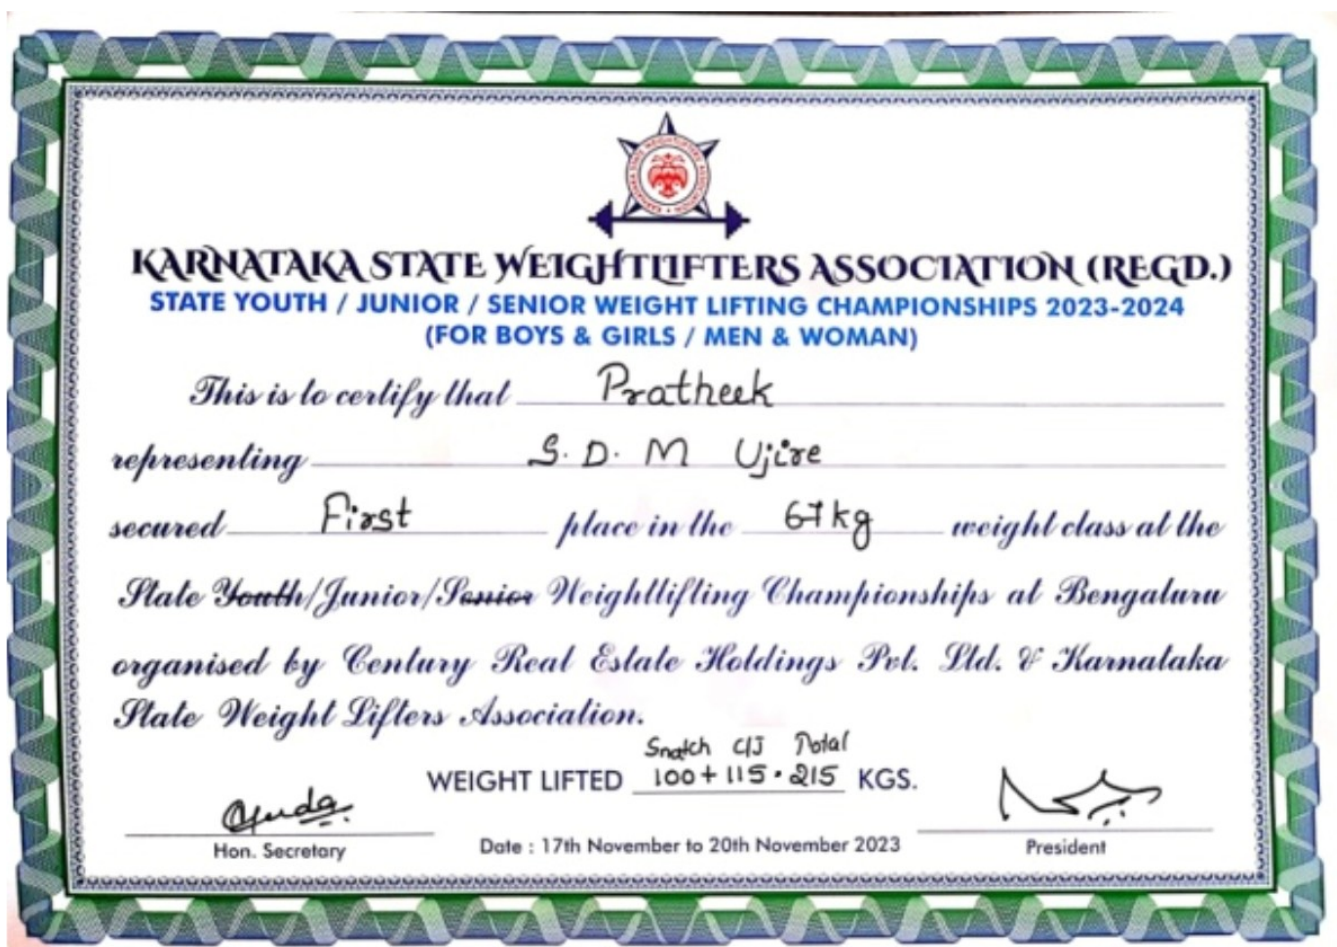 KARNATAKA STATE WEIGHTLIFTERS ASSOCIATION
KARNATAKA STATE WEIGHTLIFTERS ASSOCIATION (REGD.)
STATE YOUTH / JUNIOR / SENIOR WEIGHT LIFTING CHAMPIONSHIPS 2023-2024
(FOR BOYS & GIRLS / MEN & WOMAN)
This is to certify that Pratheek
representing S. D. M Ujire
secured First place in the 67kg weight class at the
State Youth/Junior/Senior Weightlifting Championships at Bengaluru
organised by Century Real Estate Holdings Pvt. Ltd. & Karnataka
State Weight Lifters Association.
Snatch C/J Total
WEIGHT LIFTED 100+115•215 KGS.
Hon. Secretary
Date : 17th November to 20th November 2023
President